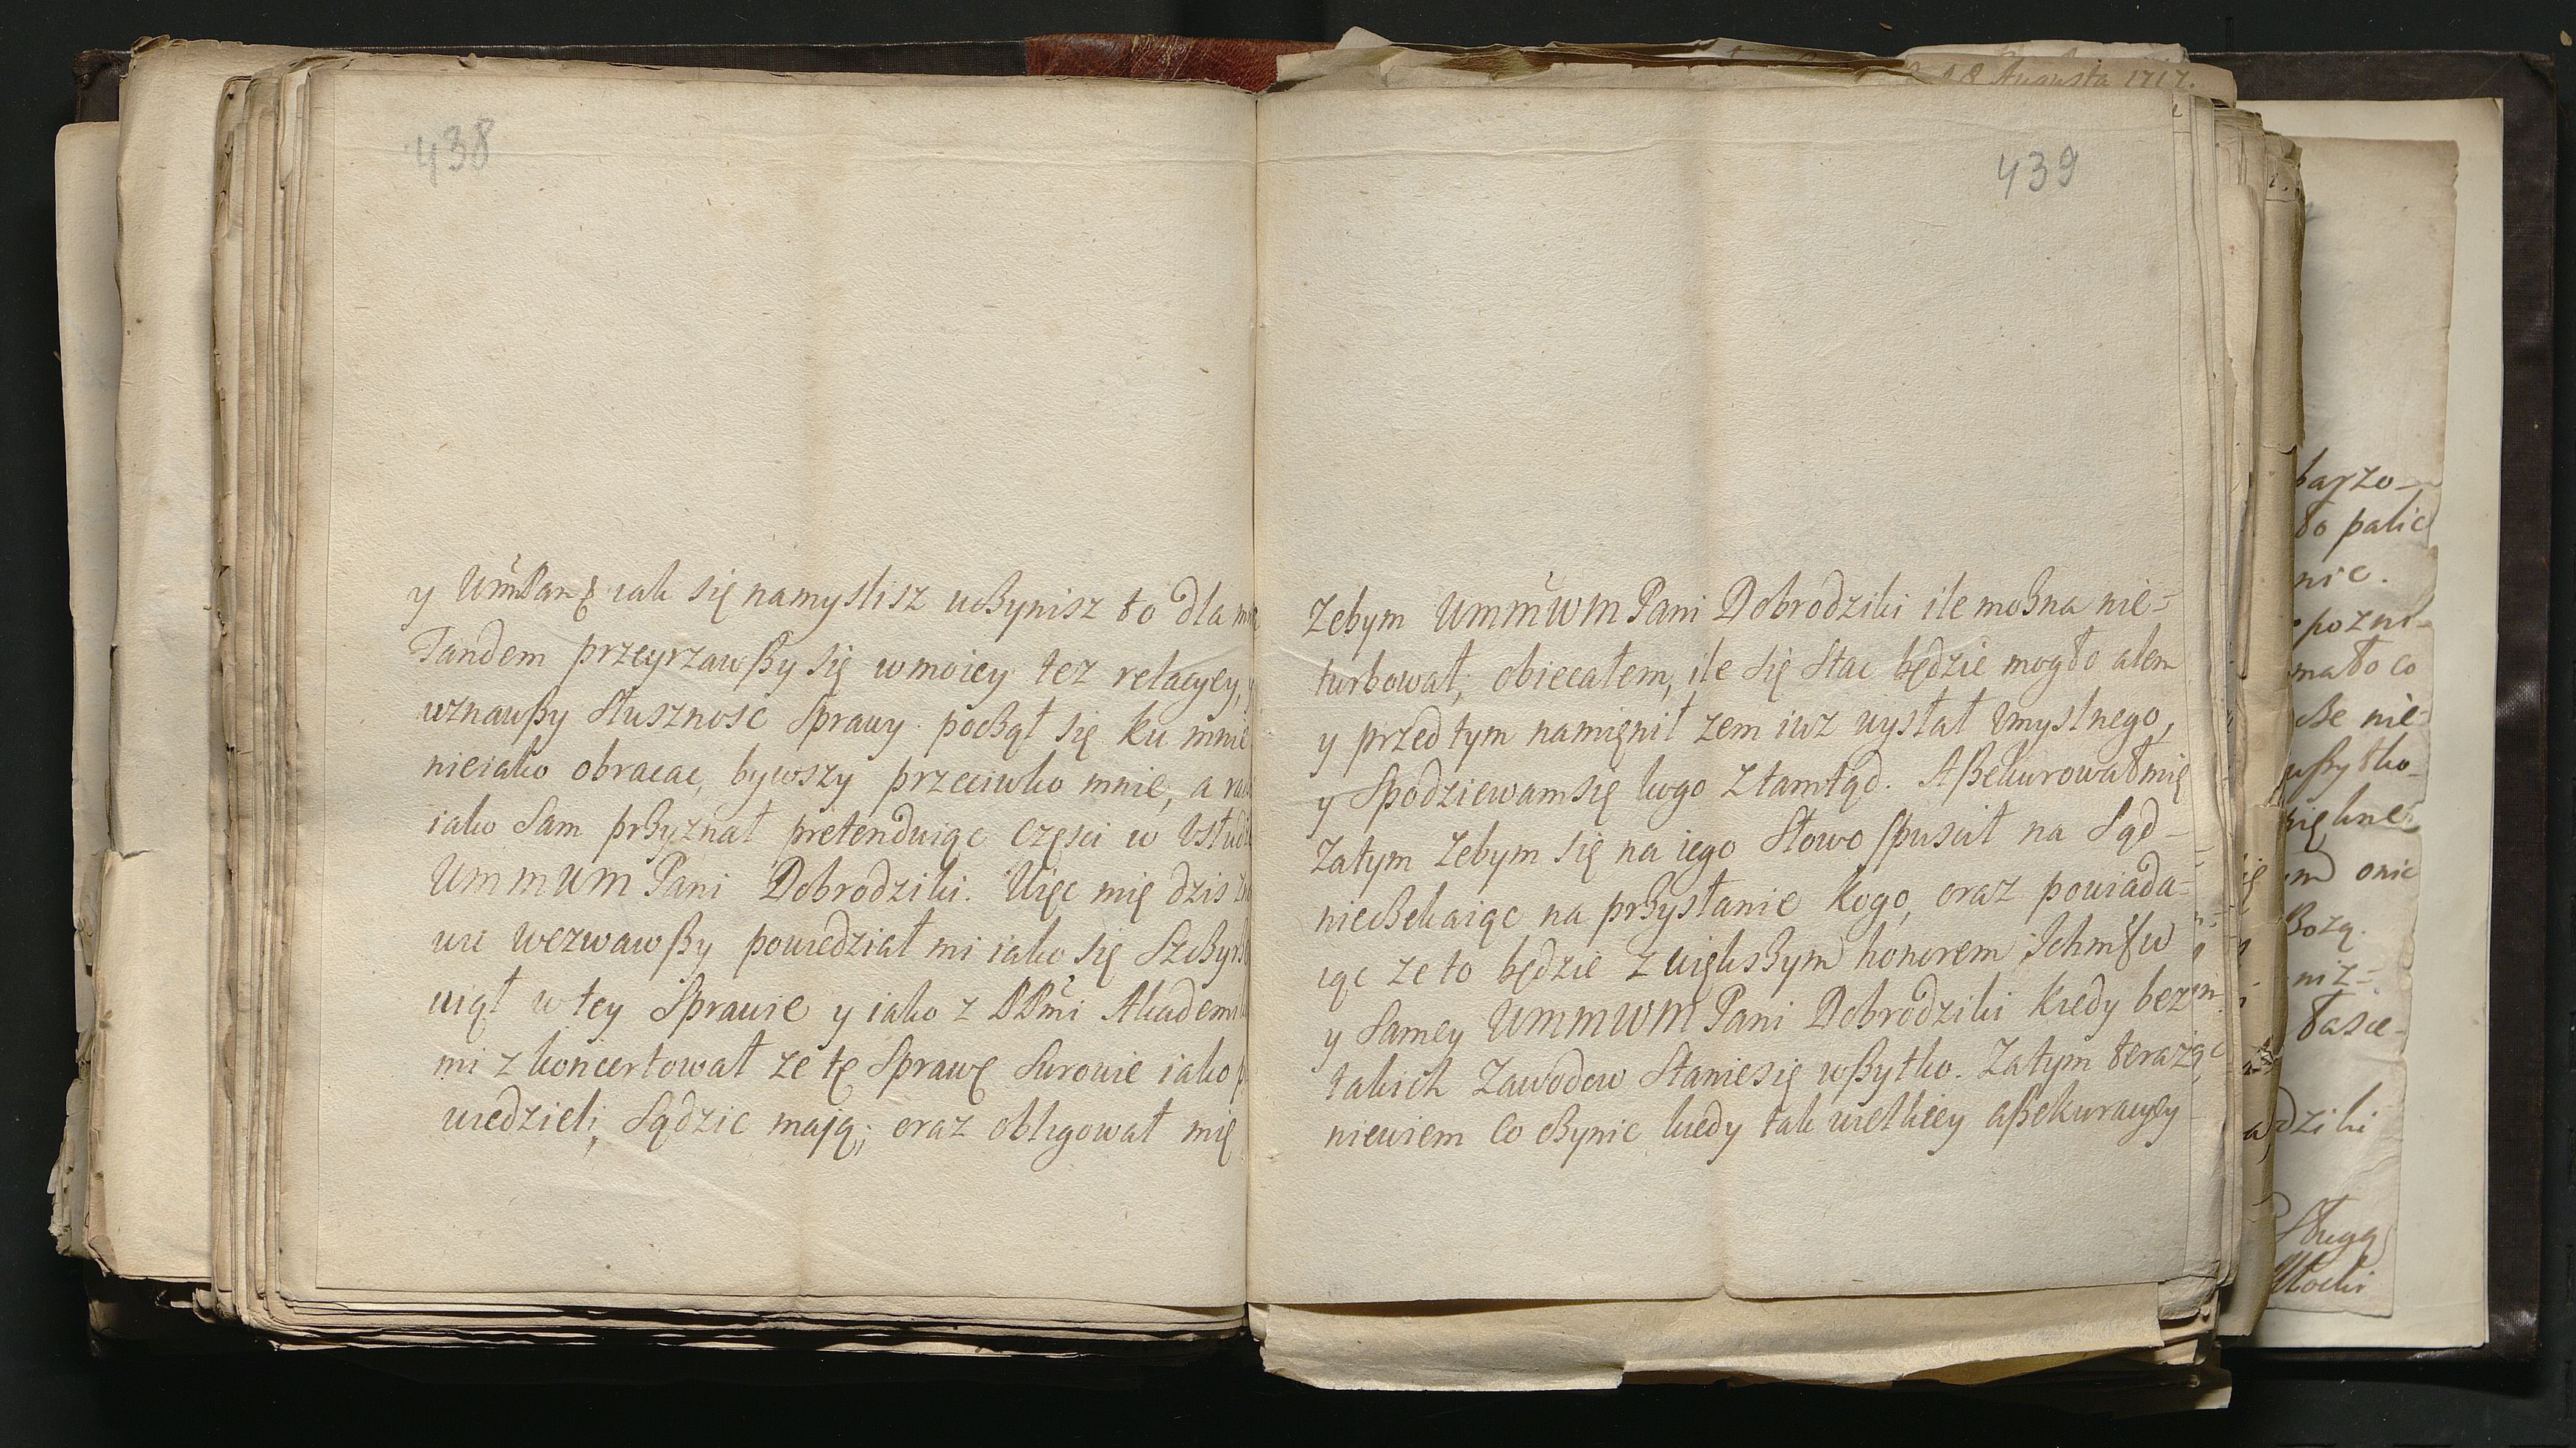 438
y WmPan jak się namyslisz uczynisz to dla
Tandem przeyrzawszy się w moiey tez relacyey,
uznawszy słusznosc sprawy począł się ku mnie
nieiako obracac, bywszy przeciwko mnie, a
iako sam przyznał pretenduiąc częsci w
UmmWm Pani Dobrodziki. Więc mię dzis
wezwawszy powiedział mi iako się
wiął w tey sprawie y iako z PPmi
mi zkoncertował ze tę sprawę surowie iako
wiedzieli, sądzic mają; oraz obligował mię
439
Zebym UmmWm Pani Dobrodziki ile mozna nie=
turbował, obiecałem, ile się stac będzie mogło alem
y przed tym namięnił zem iuz wysłał umyslnego,
y spodziewam się kogo ztamtąd. Assekurował mię
Zatym zebym się na iego słowo spuscił na sąd
nieczekaiąc na przysłanie kogo, oraz powiada=
iąc ze to będzie z większym honorem Ichmsciow
y samey UmmWm Pani Dobrodziki kiedy bez
takich zawodow stanie się wszytko. Zatym teraz
niewiem co czynic kiedy tak wielkiey assekuracyey
8 Augusta 1717.
barzo
to palic
nic.
pozni-
mało co
cze nie-
wszytko
onic
Bozą.
niz-
łasce-
dziki
Sługą